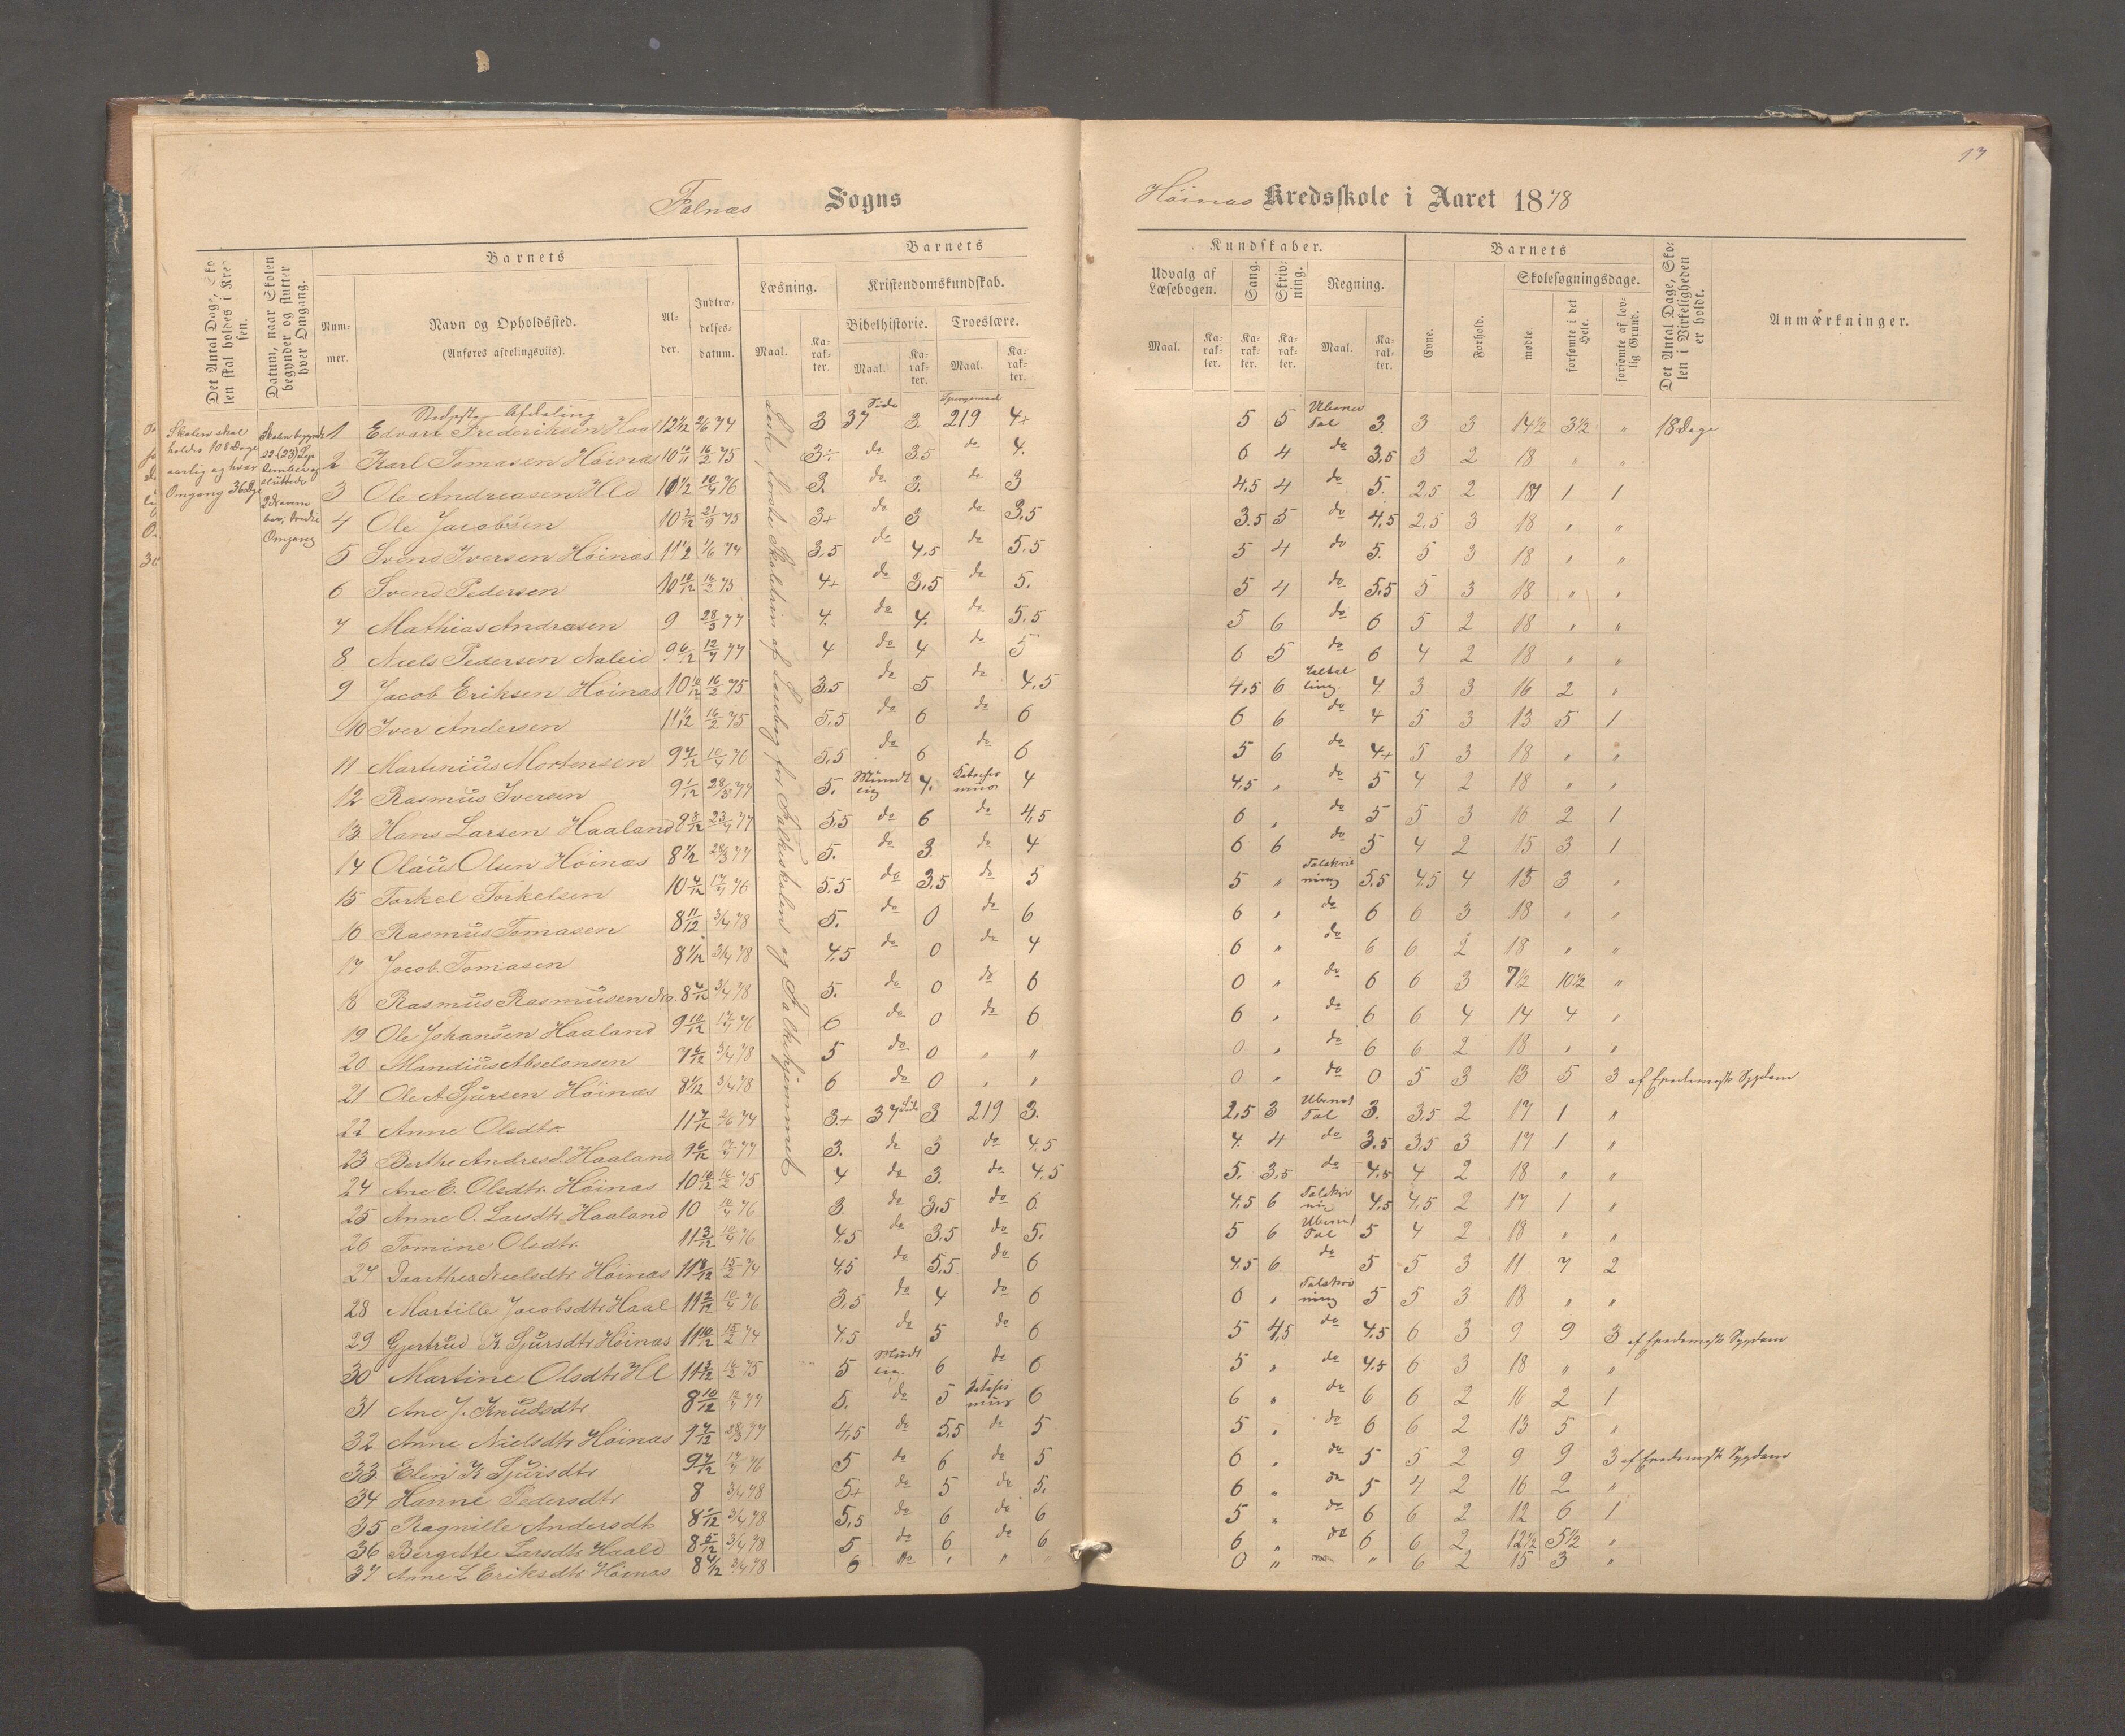 17
Falnæs Sogns
Høinæs Kredsskole i Aaret 1878
Det Antal Dage, Skolen skal holdes i Kredsen.
Datum, naar Skolen begynder og slutter hver Omgang.
Barnets
Nummer.
Navn og Opholdssted.
(Anføres afdelingsviis).
Alder.
Indtrædelsesdatum.
Barnets
Læsning.
Maal.
Karakter.
Kristendomskundskab.
Bibelhistorie.
Troeslære.
Maal. Karakter. Maal. Karakter.
Kundskaber.
Udvalg af Læsebogen.
Maal. Karakter.
Sang. Karakter.
Skrivning. Karakter.
Regning.
Maal. Karakter.
Barnets
Evne.
Forhold.
Skolesøgningsdage.
mødte.
forsømte i det Hele.
forsømte af lovlig Grund.
Det Antal Dage, Skolen i Virkeligheden er holdt.
Anmærkninger.
Skolen skal
holdes 108 Dage
aarlig og hver
Omgang 36 Dage
Skolen begyndte
22 (23) Sep
tember og
sluttede
2 Novem
ber, tredie
Omgang
Nederste Afdeling
1 Edvart Frederiksen Haal 3 37 Side 3 219 4+ 5 5 Ubenev Tal 3 3 3 14½ 3½ " 18 Dage
2 Karl Tomasen Høinæs 10 16/2 75 3÷ do 3,5 do 4. 6 4 do 3,5 3 2 18 " "
3 Ole Andreasen Hld 10/4 76 3. do 3. do 3 4,5 4 do 5. 2,5 2 17 1 1
4 Ole Jacobsen 10 2/12 21/9 75 3+ do 3 do 3,5 3.5 5 do 4,5 2,5 3 18 " "
5 Svend Iversen Høinæs 3,5 do 4,5 do 5.5 5 4 do 5. 5 3 18 " "
6 Svend Pedersen 10 10/12 16/2 75 4+ do 3,5 do 5. 5 4 do 5,5 5 3 18 " "
7 Mathias Andreasen 9 28/3 77 4. do 4. do 5,5 5 6 do 6 5 2 18 " "
8 Niels Pedersen Naleid 9 6/12 12/4 77 4 do 4 do 5 6 5 do 6 4 2 18 " "
9 Jacob Eriksen Høinæs 10 10/12 16/2 75 3,5 do 5 do 4,5 4,5 6 4 3 3 16 2 "
10 Iver Andersen 16/2 75 5,5 do 6 do 6 6 6 do 4 5 3 13 5 1
11 Martinius Mortensen 9 7/12 10/4 76 5,5 do 6 do 6 5 6 do 4+ 5 3 18 " "
12 Rasmus Iversen 9 1/12 28/3 77 5. Mundt lig 4. Kateches mus 4 4,5 " do 5 4 2 18 " "
13 Hans Larsen Haaland 9 8/12 23/4 77 5,5 do 6 do 4,5 6 " do 5 5 3 16 2 1
14 Olaus Olsen Høinæs 28/3 77 5. do 3 do 4 6 6 do 5 4 2 15 3 1
15 Torkel Torkelsen 10 4/12 17/4 76 5.5 do 3,5 do 5 5 " Talskriv ning 5,5 4,5 4 15 3 "
16 Rasmus Tomasen 8 11/12 3/4 78 5. do 0 do 6 6 " do 6 6 3 18 " "
17 Jacob Tomasen 3/4 78 4.5 do 0 do 4 6 " do 6 6 2 18 " "
18 Rasmus Rasmusen 8 4/12 3/4 78 5. do 0 do 6 0 " do 6 6 3 7½ 10½ "
19 Ole Johansen Haaland 9 10/12 17/4 76 6 do 0 do 6 6 " do 6 6 4 14 4 "
20 Mandius Abselonsen 7 6/12 3/4 78 5 do 0 " " 0 " do 6 6 2 18 " "
21 Ole A Sjursen Høinæs 3/4 78 6 do 0 " " 0 " do 0 5 3 13 5 3 af Epedemisk Sygdom
22 Anne Olsdtr. 11 7/12 74 3+ 37 Side 3 219 3. 2,5 3 Ubenev Tal 3. 3,5 2 17 1 "
23 Berthe Andresd. Haaland 9 6/12 17/4 77 3. do 3 do 4,5 4. 4 do 3.5 3,5 3 17 1 "
24 Ane E. Olsdtr. Høinæs 10 10/12 16/2 75 4 do 3. do 4,5 5. 3,5 do 4,5 4 2 18 " "
25 Anne O. Larsdtr Haaland 10 10/4 76 3. do 3,5 do 6 4,5 6 Talskriv nig 4,5 4,5 2 17 1 "
26 Tomine Olsdtr. 11 3/12 10/4 76 4,5 do 3,5 do 5. 5 6 Ubenev Tal 5 4 2 18 " "
27 Daarthea Nielsdtr Høinæs 11 8/12 15/2 74 4,5 do 5,5 do 6 4.5 6 do 5 5 3 11 7 2
28 Martille Jacobsdtr Haal 11 2/12 10/4 76 3,5 do 4 do 6 6 " Talskriv ning 5 5 3 18 " "
29 Gjertrud K Sjursdtr Høinæs 11 10/12 15/2 74 4,5 do 5 do 6 5 4,5 do 4,5 6 3 9 9 3 af Epedemisk Sygdom
30 Martine Olsdtr Hl 16/2 75 5 Mudt lig. 6 do 6 5 " do 4,5 6 3 18 " "
31 Ane J. Knudsdtr. 8 10/12 12/4 77 5. do 5 Kateches mus 6 6 " do 6 6 2 16 2 1
32 Anne Nielsdtr Høinæs 28/3 77 4,5 do 5,5 do 5 5 " do 6 6 2 13 5 "
33 Elen K Sjursdtr 9 7/12 17/4 76 5 do 6 do 5 6 " do 5 5 2 9 9 3 af Epedemisk Sygdom
34 Hanne Pedersdtr 8 3/4 78 5+ do 5 do 5. 6 " do 5 4 2 16 2 "
35 Ragnille Andersdt 3/4 78 5,5 do 6 do 6 5 " do 6 6 2 12 6 1
36 Bergitte Larsdtr Haald 8 5/12 3/4 78 5 do 6 do 6 6 " do 6 6 2 12½ 5½ "
37 Anne L Eriksdtr Høinæs 3/4 78 6 do " " 0 " " 6 2 15 3 "
Skoletrin af Læsebog for Folkeskolen og Folkehjemmet